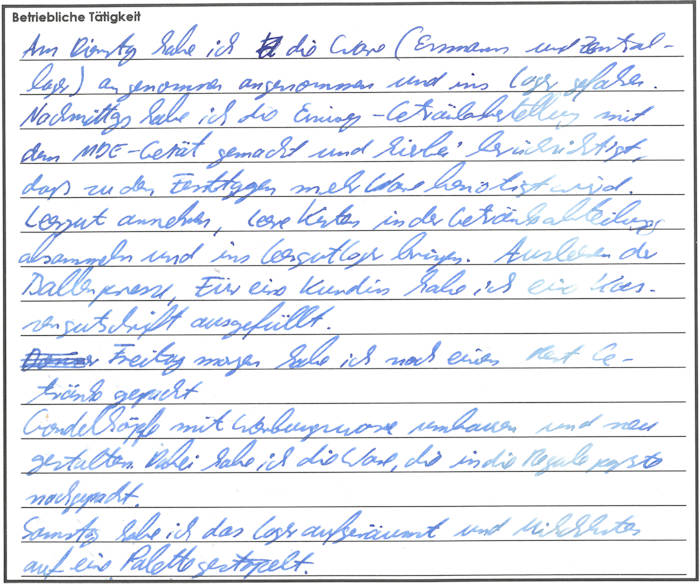 Betriebliche Tätigkeit
Am Dienstag habe ich die Ware (Ermanns und Zentral-
lager) angenommen angenommen und ins Lager gefahren.
Nachmittags habe ich die Einweg-Getränkebestellung mit
dem MDE-Gerät gemacht und hierbei berücksichtigt,
daß zu den Festtagen mehr Ware benötigt wird.
Leergut annehmen, leere Kisten in der Getränkeabteilung
absammeln und ins Leergutlager bringen. Ausleeren der
Ballenpresse, Für eine Kundin habe ich eine Kas-
sengutschrift ausgefüllt.
Freitag morgen habe ich noch einen Rest Ge-
tränke gepackt
Gondelköpfe mit Werbungsware umbauen und neu
gestalten. Dabei habe ich die Ware, die in die Regale passte
nachgepackt.
Samstag habe ich das Lager aufgeräumt und Milchkisten
auf eine Palette gestapelt.